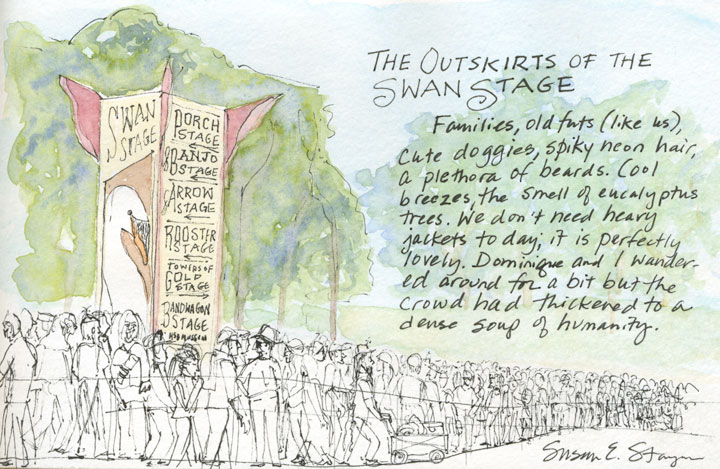 THE OUTSKIRTS OF THE
SWAN STAGE
Families, old futs (like us),
cute doggies, spiky neon hair,
a plethora of beards. Cool
breezes, the smell of eucalyptus
trees. We don't need heavy
jackets today; it is perfectly
lovely. Dominique and I wander-
ed around for a bit but the
crowd had thickened to a
dense soup of humanity.
SWAN
STAGE
PORCH
STAGE
BANJO
STAGE
ARROW
STAGE
ROOSTER
STAGE
TOWERS OF
GOLD
STAGE
BANDWAGON
STAGE
Susan E.